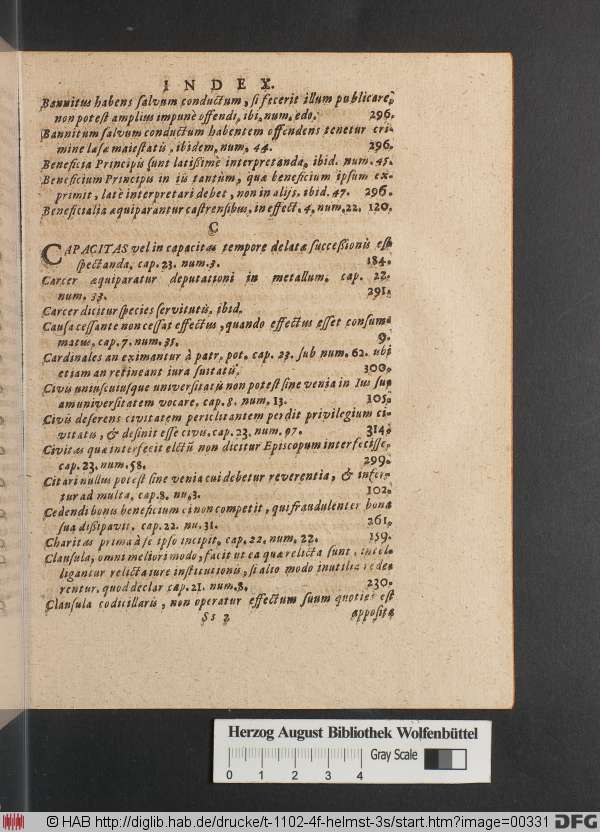 INDEX.
Bannitus habens salvum conductum, si fecerit illum publicare,
non potest amplius impunè offendi, ibi, num, edo. 296.
Bannitum salvum conductum habentem offendens tenetur cri-
mine læsæ maiestatis, ibidem, num, 44. 296.
Beneficia Principis sunt latissimè interpretanda, ibid. num. 45.
Beneficium Principis in iis tantùm, quæ beneficium ipsum ex-
primit, latè interpretari debet, non in alijs. ibid. 47. 296.
Beneficialia æquiparantur castrensibus, in effect. 4, num. 22. 120.
C
CAPACITAS vel incapacitas tempore delatæ successionis est
spectanda, cap. 23. num. 3. 184.
Carcer æquiparatur deputationi in metallum. cap. 22.
num. 33. 291.
Carcer dicitur species servitutis, ibid.
Causa cessante non cessat effectus, quando effectus esset consum-
matus, cap. 7. num. 35. 9.
Cardinales an eximantur à patr, pot. cap. 23. sub num. 62. ubi
etiam an retineant iura suitatis. 300.
Civis uniuscuiusque universitatis non potest sine venia in Ius su-
am universitatem vocare, cap. 8. num. 13. 105.
Civis deserens civitatem periclitantem perdit privilegium ci-
vitatis, & desinit esse civis, cap. 23. num. 97. 314.
Civitas quæ interfecit electũ non dicitur Episcopum interfecisse,
cap. 23. num. 58. 299.
Citari nullus potest sine venia cui debetur reverentia, & infer-
tur ad multa, cap. 8. nu, 3. 102.
Cedendi bonis beneficium ei non competit, qui fraudulenter bona
sua dissipavit, cap. 22. nu. 31. 261.
Charitas prima à se ipso incipit, cap. 22, num. 22. 159.
Clausula, omni meliori modo, facit ut ea quæ relicta sunt, intel-
ligantur relicta iure institutionis, si alio modo inutilia redde-
rentur, quod declar cap. 21. num. 8. 230.
Clausula codicillaris, non operatur effectum suum quoties est
Ss 2 apposita
Herzog August Bibliothek Wolfenbüttel
Gray Scale
0 1 2 3 4
© HAB http://diglib.hab.de/drucke/t-1102-4f-helmst-3s/start.htm?image=00331
DFG